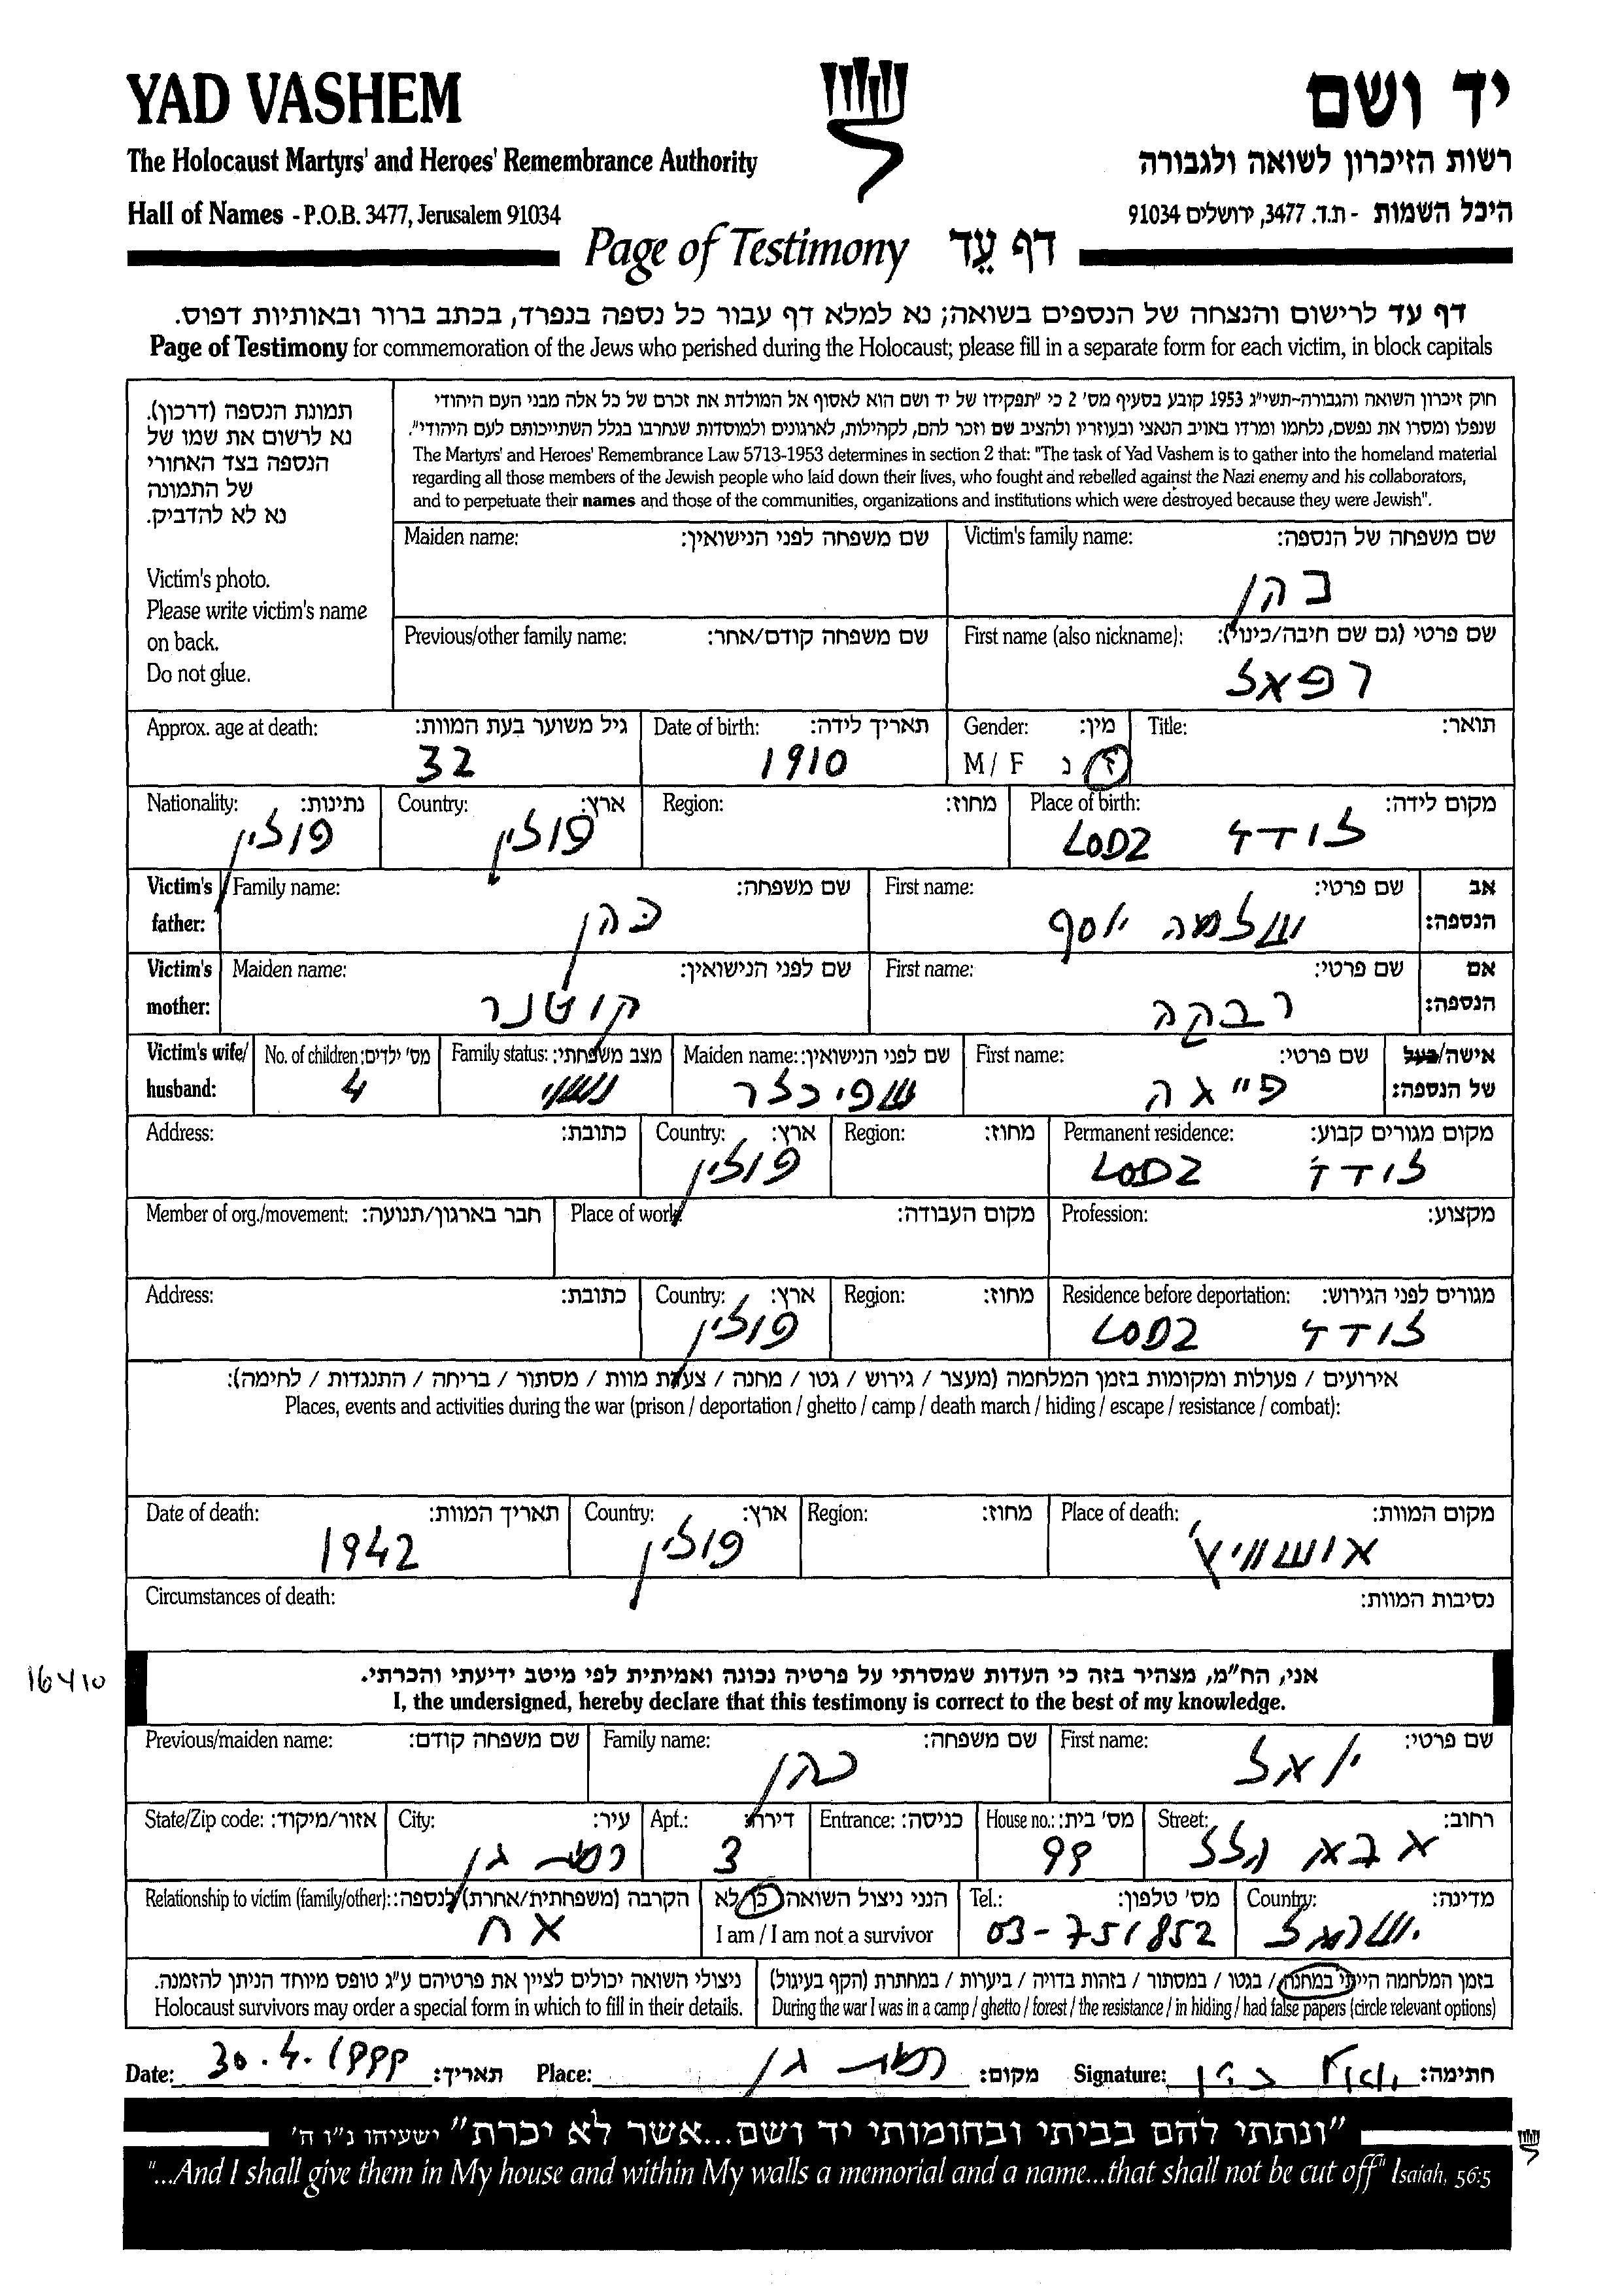 YAD VASHEM יד ושם
The Holocaust Martyrs' and Heroes' Remembrance Authority רשות הזיכרון לשואה ולגבורה
Hall of Names - P.O.B. 3477, Jerusalem 91034 היכל השמות - ת.ד. 3477, ירושלים 91034
Page of Testimony דף עֵד
דף עד לרישום והנצחה של הנספים בשואה; נא למלא דף עבור כל נספה בנפרד, בכתב ברור ובאותיות דפוס.
Page of Testimony for commemoration of the Jews who perished during the Holocaust; please fill in a separate form for each victim, in block capitals
תמונת הנספה (דרכון).
נא לרשום את שמו של
הנספה בצד האחורי
של התמונה
נא לא להדביק.
Victim's photo.
Please write victim's name
on back.
Do not glue.
חוק זיכרון השואה והגבורה-תשי"ג 1953 קובע בסעיף מס' 2 כי "תפקידו של יד ושם הוא לאסוף אל המולדת את זכרם של כל אלה מבני העם היהודי
שנפלו ומסרו את נפשם, נלחמו ומרדו באויב הנאצי ובעוזריו ולהציב שם וזכר להם, לקהילות, לארגונים ולמוסדות שנחרבו בגלל השתייכותם לעם היהודי".
The Martyrs' and Heroes' Remembrance Law 5713-1953 determines in section 2 that: "The task of Yad Vashem is to gather into the homeland material
regarding all those members of the Jewish people who laid down their lives, who fought and rebelled against the Nazi enemy and his collaborators,
and to perpetuate their names and those of the communities, organizations and institutions which were destroyed because they were Jewish".
Victim's family name: שם משפחה של הנספה: Maiden name: שם משפחה לפני הנישואין:
כהן
First name (also nickname): שם פרטי (גם שם חיבה/כינוי): Previous/other family name: שם משפחה קודם/אחר:
רפאל
Title: תואר: Gender: מין: Date of birth: תאריך לידה: Approx. age at death: גיל משוער בעת המוות:
M / F ז נ 1910 32
Place of birth: מקום לידה: Region: מחוז: Country: ארץ: Nationality: נתינות:
לודז LODZ פולין פולין
אב הנספה: First name: שם פרטי: Family name: שם משפחה: Victim's father:
שלמה יוסף כהן
אם הנספה: First name: שם פרטי: Maiden name: שם לפני הנישואין: Victim's mother:
רבקה קוטנר
אישה/בעל של הנספה: First name: שם פרטי: Maiden name: שם לפני הנישואין: Family status: מצב משפחתי: No. of children: מס' ילדים: Victim's wife/ husband:
פייגה שפיכלר נשוי 4
Permanent residence: מקום מגורים קבוע: Region: מחוז: Country: ארץ: Address: כתובת:
לודז LODZ פולין
Profession: מקצוע: Place of work: מקום העבודה: Member of org./movement: חבר בארגון/תנועה:
Residence before deportation: מגורים לפני הגירוש: Region: מחוז: Country: ארץ: Address: כתובת:
לודז LODZ פולין
אירועים / פעולות ומקומות בזמן המלחמה (מעצר / גירוש / גטו / מחנה / צעדת מוות / מסתור / בריחה / התנגדות / לחימה):
Places, events and activities during the war (prison / deportation / ghetto / camp / death march / hiding / escape / resistance / combat):
Place of death: מקום המוות: Region: מחוז: Country: ארץ: Date of death: תאריך המוות:
אושוויץ פולין 1942
Circumstances of death: נסיבות המוות:
16410
אני, הח"מ, מצהיר בזה כי העדות שמסרתי על פרטיה נכונה ואמיתית לפי מיטב ידיעתי והכרתי.
I, the undersigned, hereby declare that this testimony is correct to the best of my knowledge.
First name: שם פרטי: Family name: שם משפחה: Previous/maiden name: שם משפחה קודם:
יואל כהן
Street: רחוב: House no.: מס' בית: Entrance: כניסה: Apt.: דירה: City: עיר: State/Zip code: אזור/מיקוד:
אבא הלל 99 3 רמת גן
Country: מדינה: Tel.: מס' טלפון: הנני ניצול השואה: כן לא Relationship to victim (family/other): הקרבה (משפחתית/אחרת) לנספה:
ישראל 03-751852 I am / I am not a survivor אח
בזמן המלחמה הייתי במחנה / בגטו / במסתור / בזהות בדויה / ביערות / במחתרת (הקף בעיגול)
During the war I was in a camp / ghetto / forest / the resistance / in hiding / had false papers (circle relevant options)
ניצולי השואה יכולים לציין את פרטיהם ע"ג טופס מיוחד הניתן להזמנה.
Holocaust survivors may order a special form in which to fill in their details.
Date: 30.4.1999 תאריך: Place: רמת גן מקום: Signature: יואל כהן חתימה:
"ונתתי להם בביתי ובחומותי יד ושם...אשר לא יכרת" ישעיהו נ"ו ה'
"...And I shall give them in My house and within My walls a memorial and a name...that shall not be cut off" Isaiah, 56:5